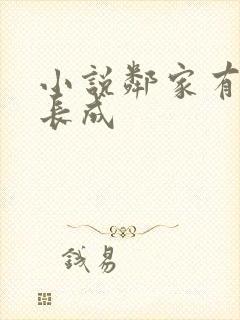 小說鄰家有
長成
錢易